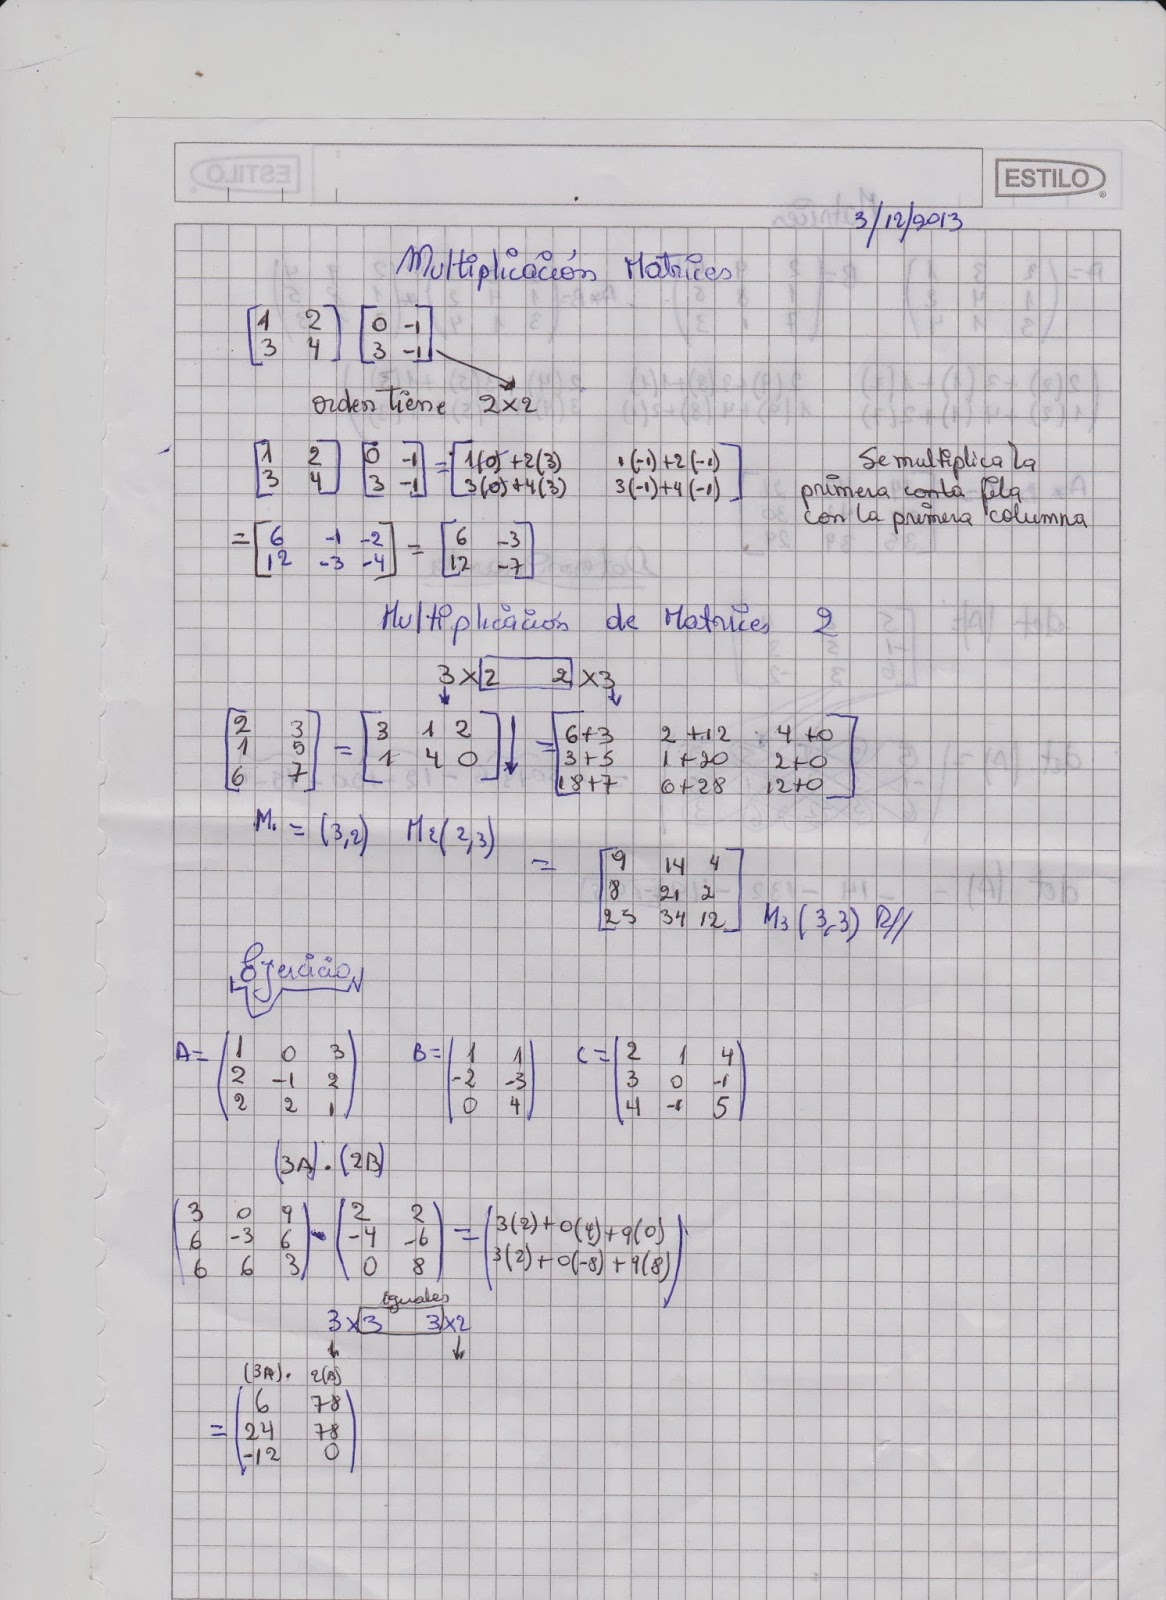 ESTILO
3/12/2013
Multiplicación Matrices
[1 2] [0 -1]
[3 4] [3 -1]
orden tiene 2x2
[1 2] [0 -1] = [1(0)+2(3) 1(-1)+2(-1)]
[3 4] [3 -1] [3(0)+4(3) 3(-1)+4(-1)]
Se multiplica la
primera conta fila
con la primera columna
= [6 -1 -2] = [6 -3]
[12 -3 -4] [12 -7]
Multiplicación de Matrices 2
3x2 2x3
[2 3] = [3 1 2] = [6+3 2+12 4+0]
[1 5] [1 4 0] [3+5 1+20 2+0]
[6 7] [18+7 6+28 12+0]
M1 = (3,2) M2(2,3)
= [9 14 4]
[8 21 2]
[25 34 12] M3(3,3) R//
Ejercicio
A= (1 0 3) B= (1 1) C= (2 1 4)
(2 -1 2) (-2 -3) (3 0 -1)
(2 2 1) (0 4) (4 -1 5)
(3A).(2B)
(3 0 9) . (2 2) = (3(2)+0(4)+9(0)
(6 -3 6) (-4 -6) 3(2)+0(-8)+9(8))
(6 6 3) (0 8)
iguales
3x3 3x2
(3A). 2(B)
= (6 78)
(24 78)
(-12 0)